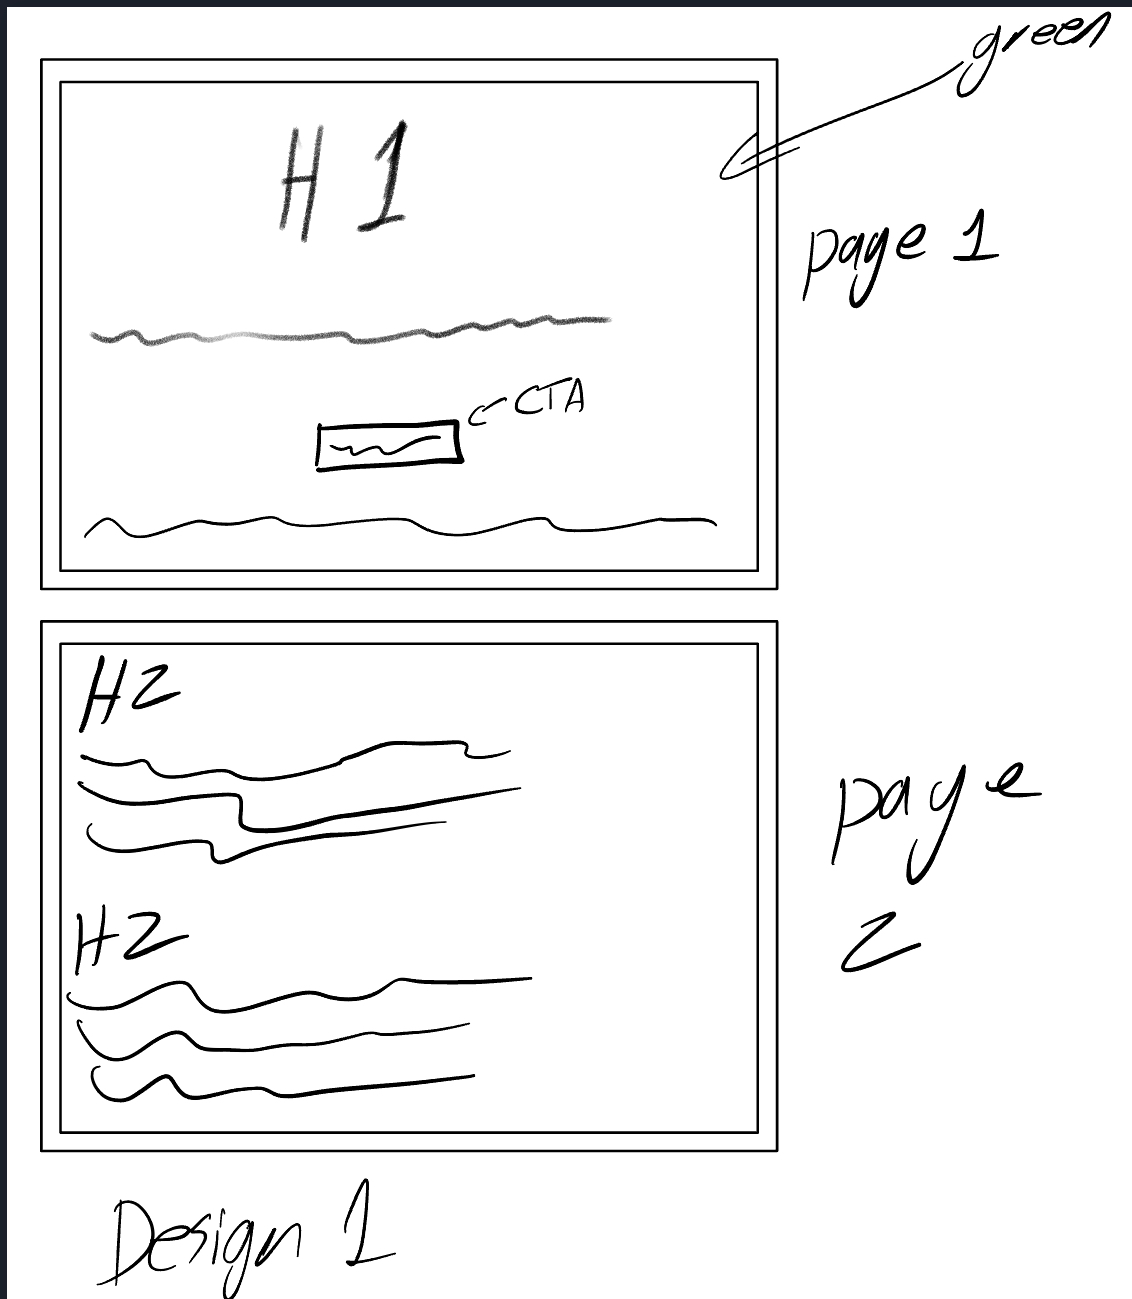 green
H1
page 1
CTA
H2
page
2
H2
Design 1